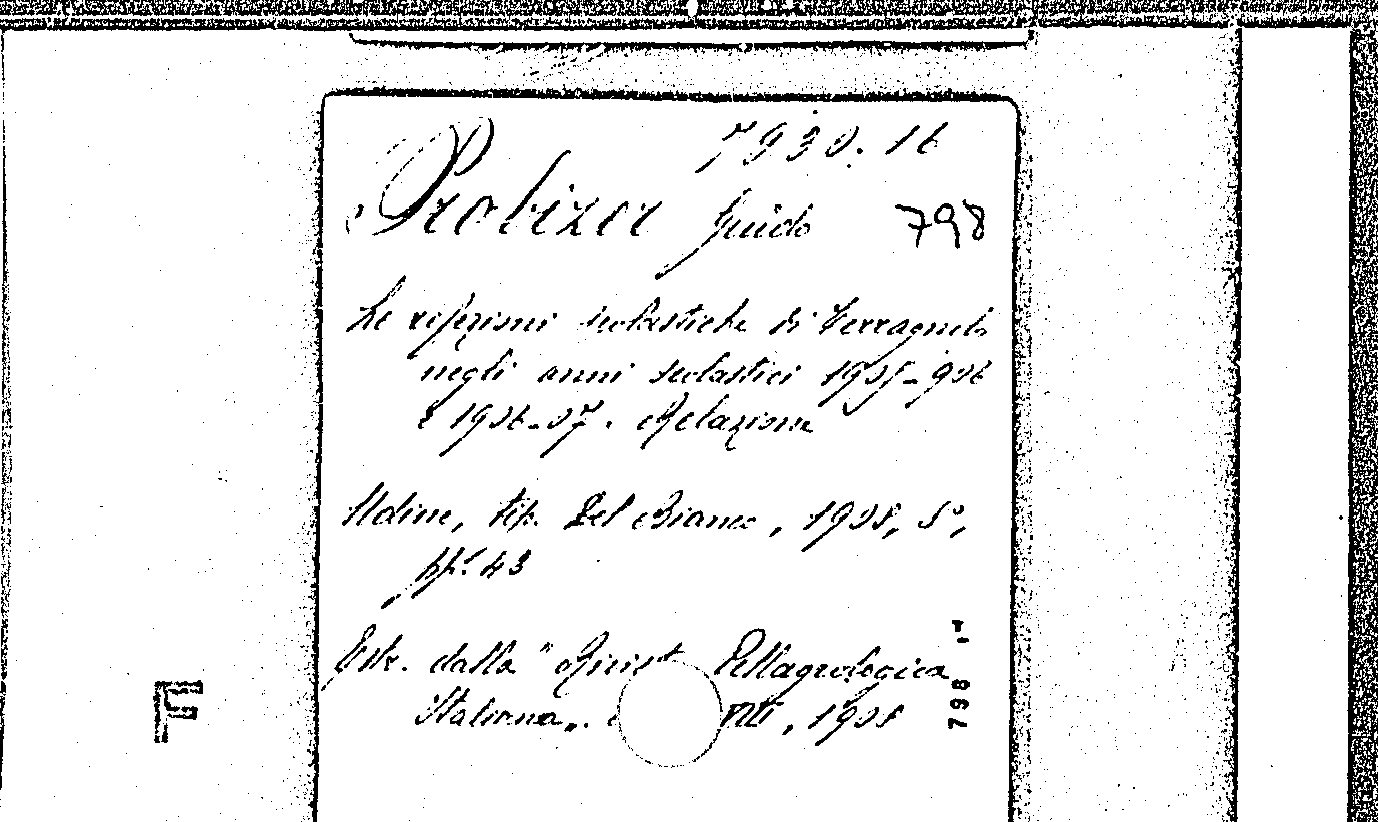 7930.16
Probizer Guido 798
Le refezioni scolastiche di Terragnolo
negli anni scolastici 1905-906
e 1906-07. Relazione
Udine, tip. Del Bianco, 1908, 8°,
pp. 43
Estr. dalla "Rivist Pellagrologica
Italiana". VIII, 1908
798 1
F